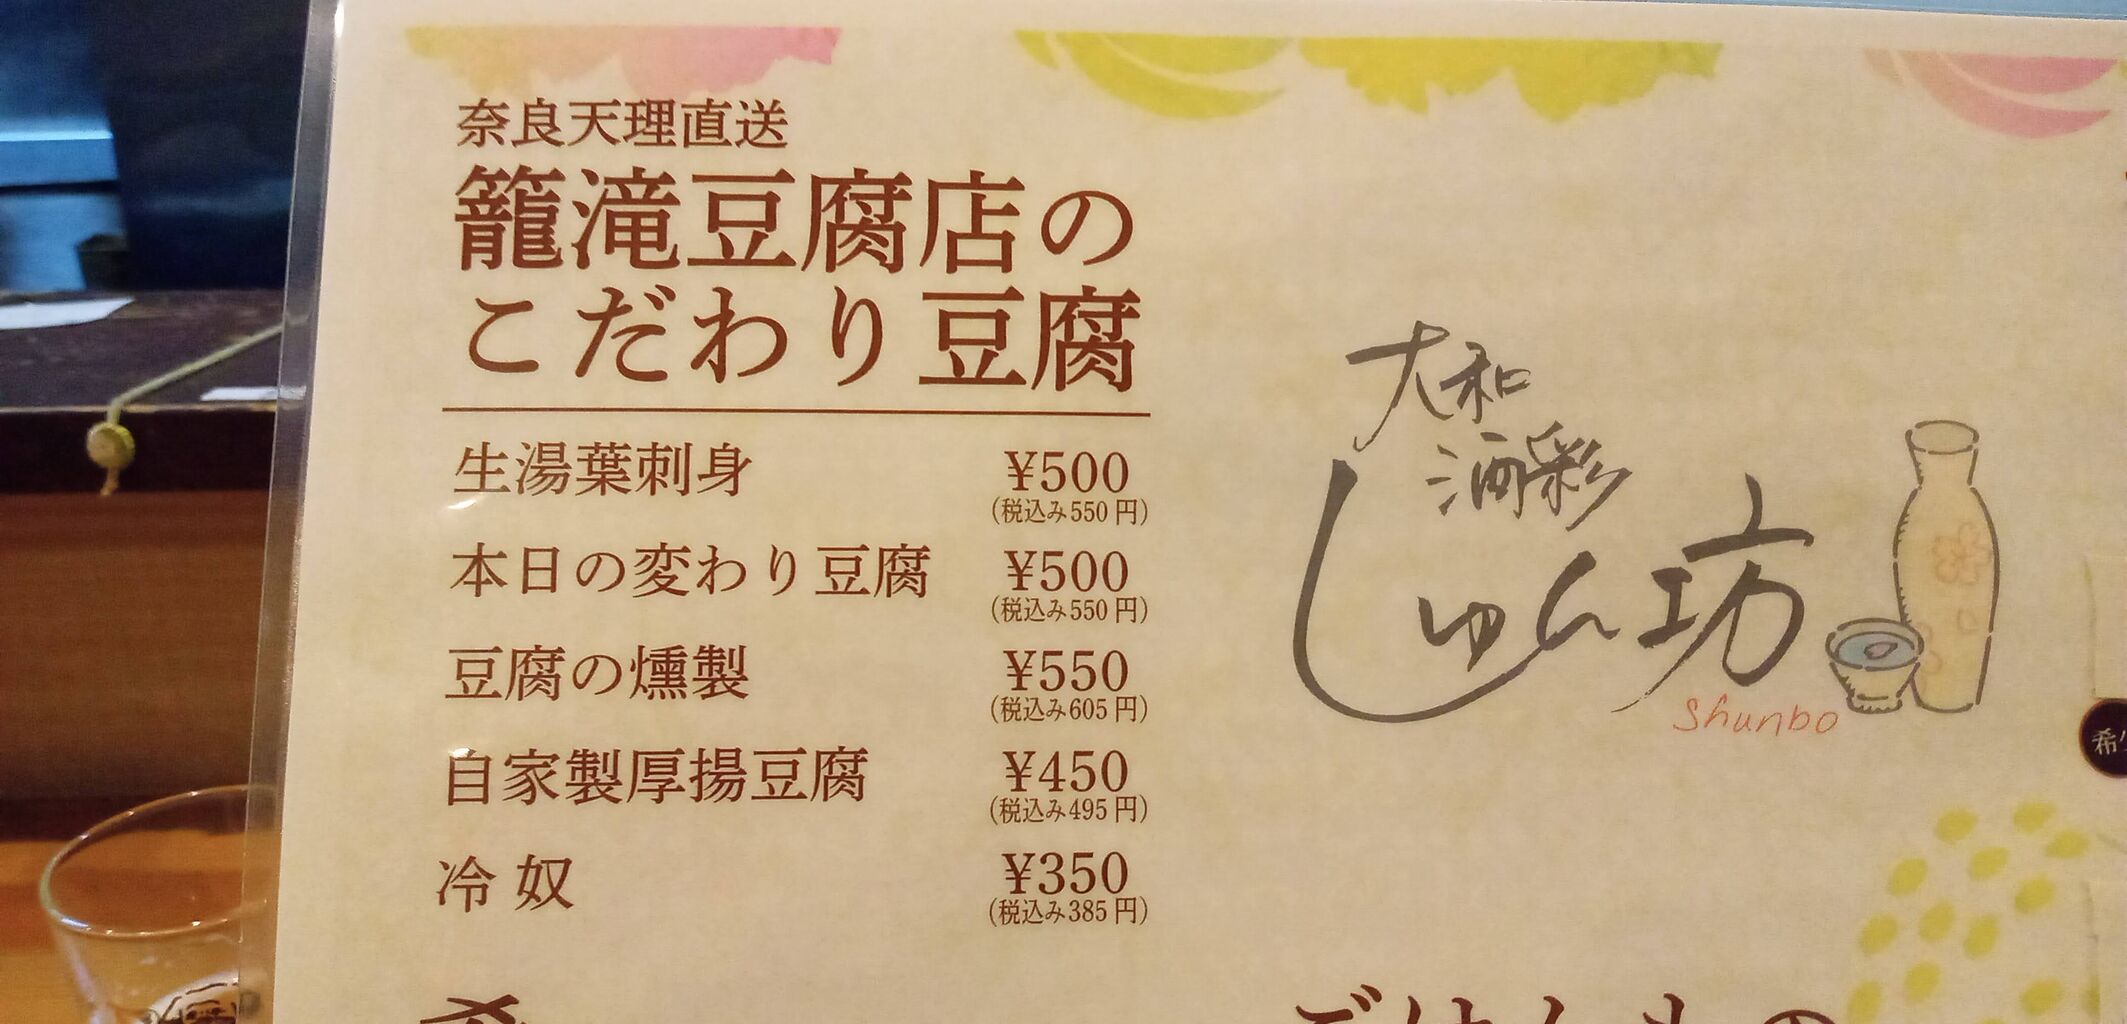 奈良天理直送
籠滝豆腐店の
こだわり豆腐
生湯葉刺身 ¥500
(税込み550円)
本日の変わり豆腐 ¥500
(税込み550円)
豆腐の燻製 ¥550
(税込み605円)
自家製厚揚豆腐 ¥450
(税込み495円)
冷奴 ¥350
(税込み385円)
大和
酒彩
しゅん坊
Shunbo
希
ごはんもの